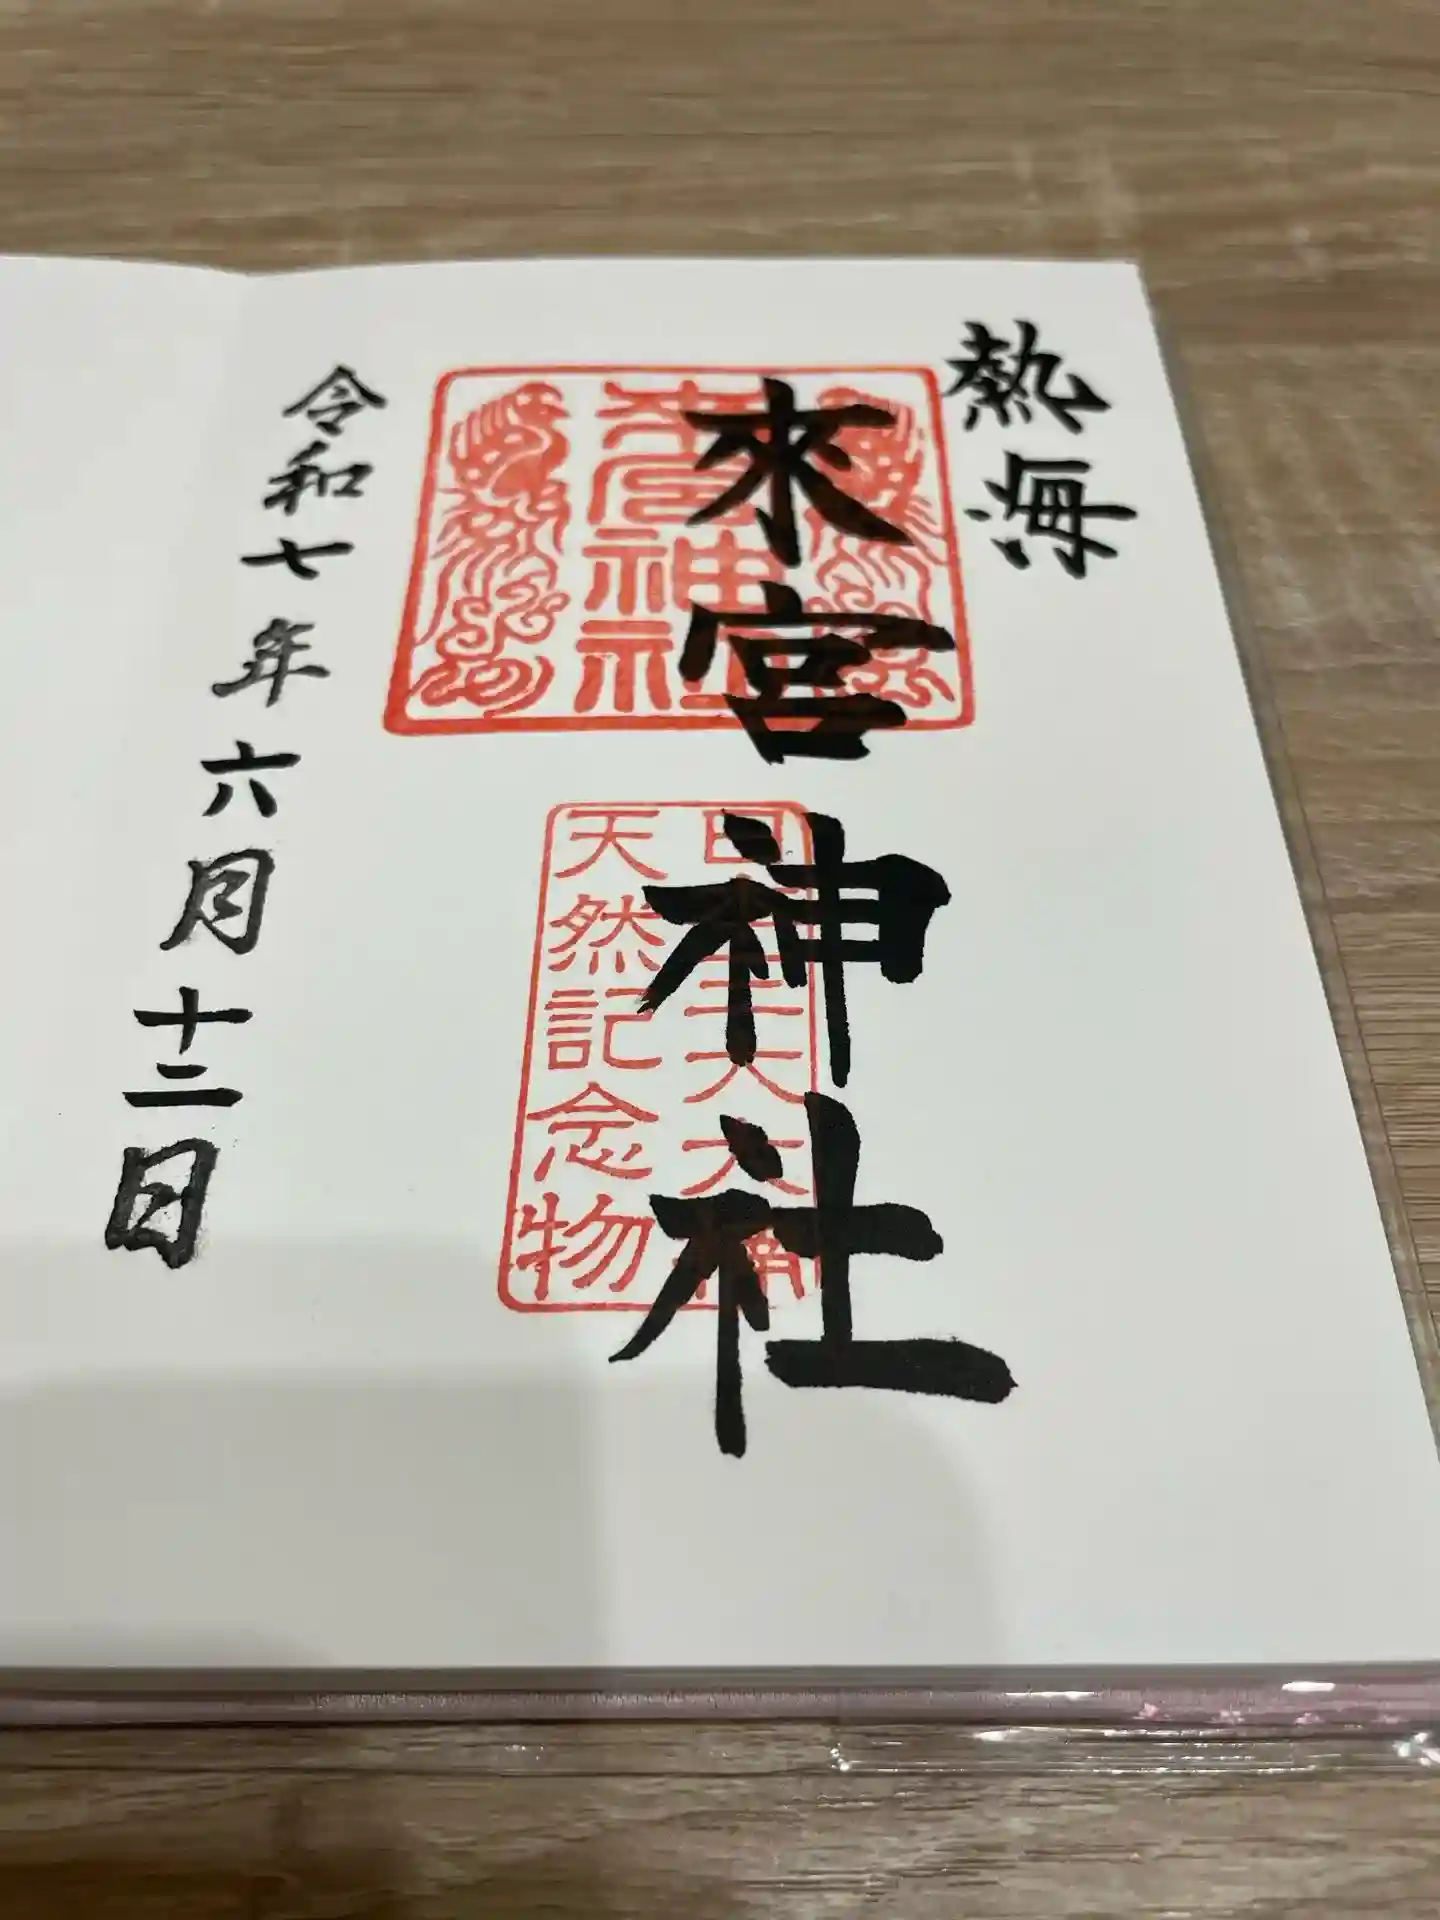 熱海
來宮神社
來宮神社
日本三大大楠
天然記念物
令和七年六月十二日